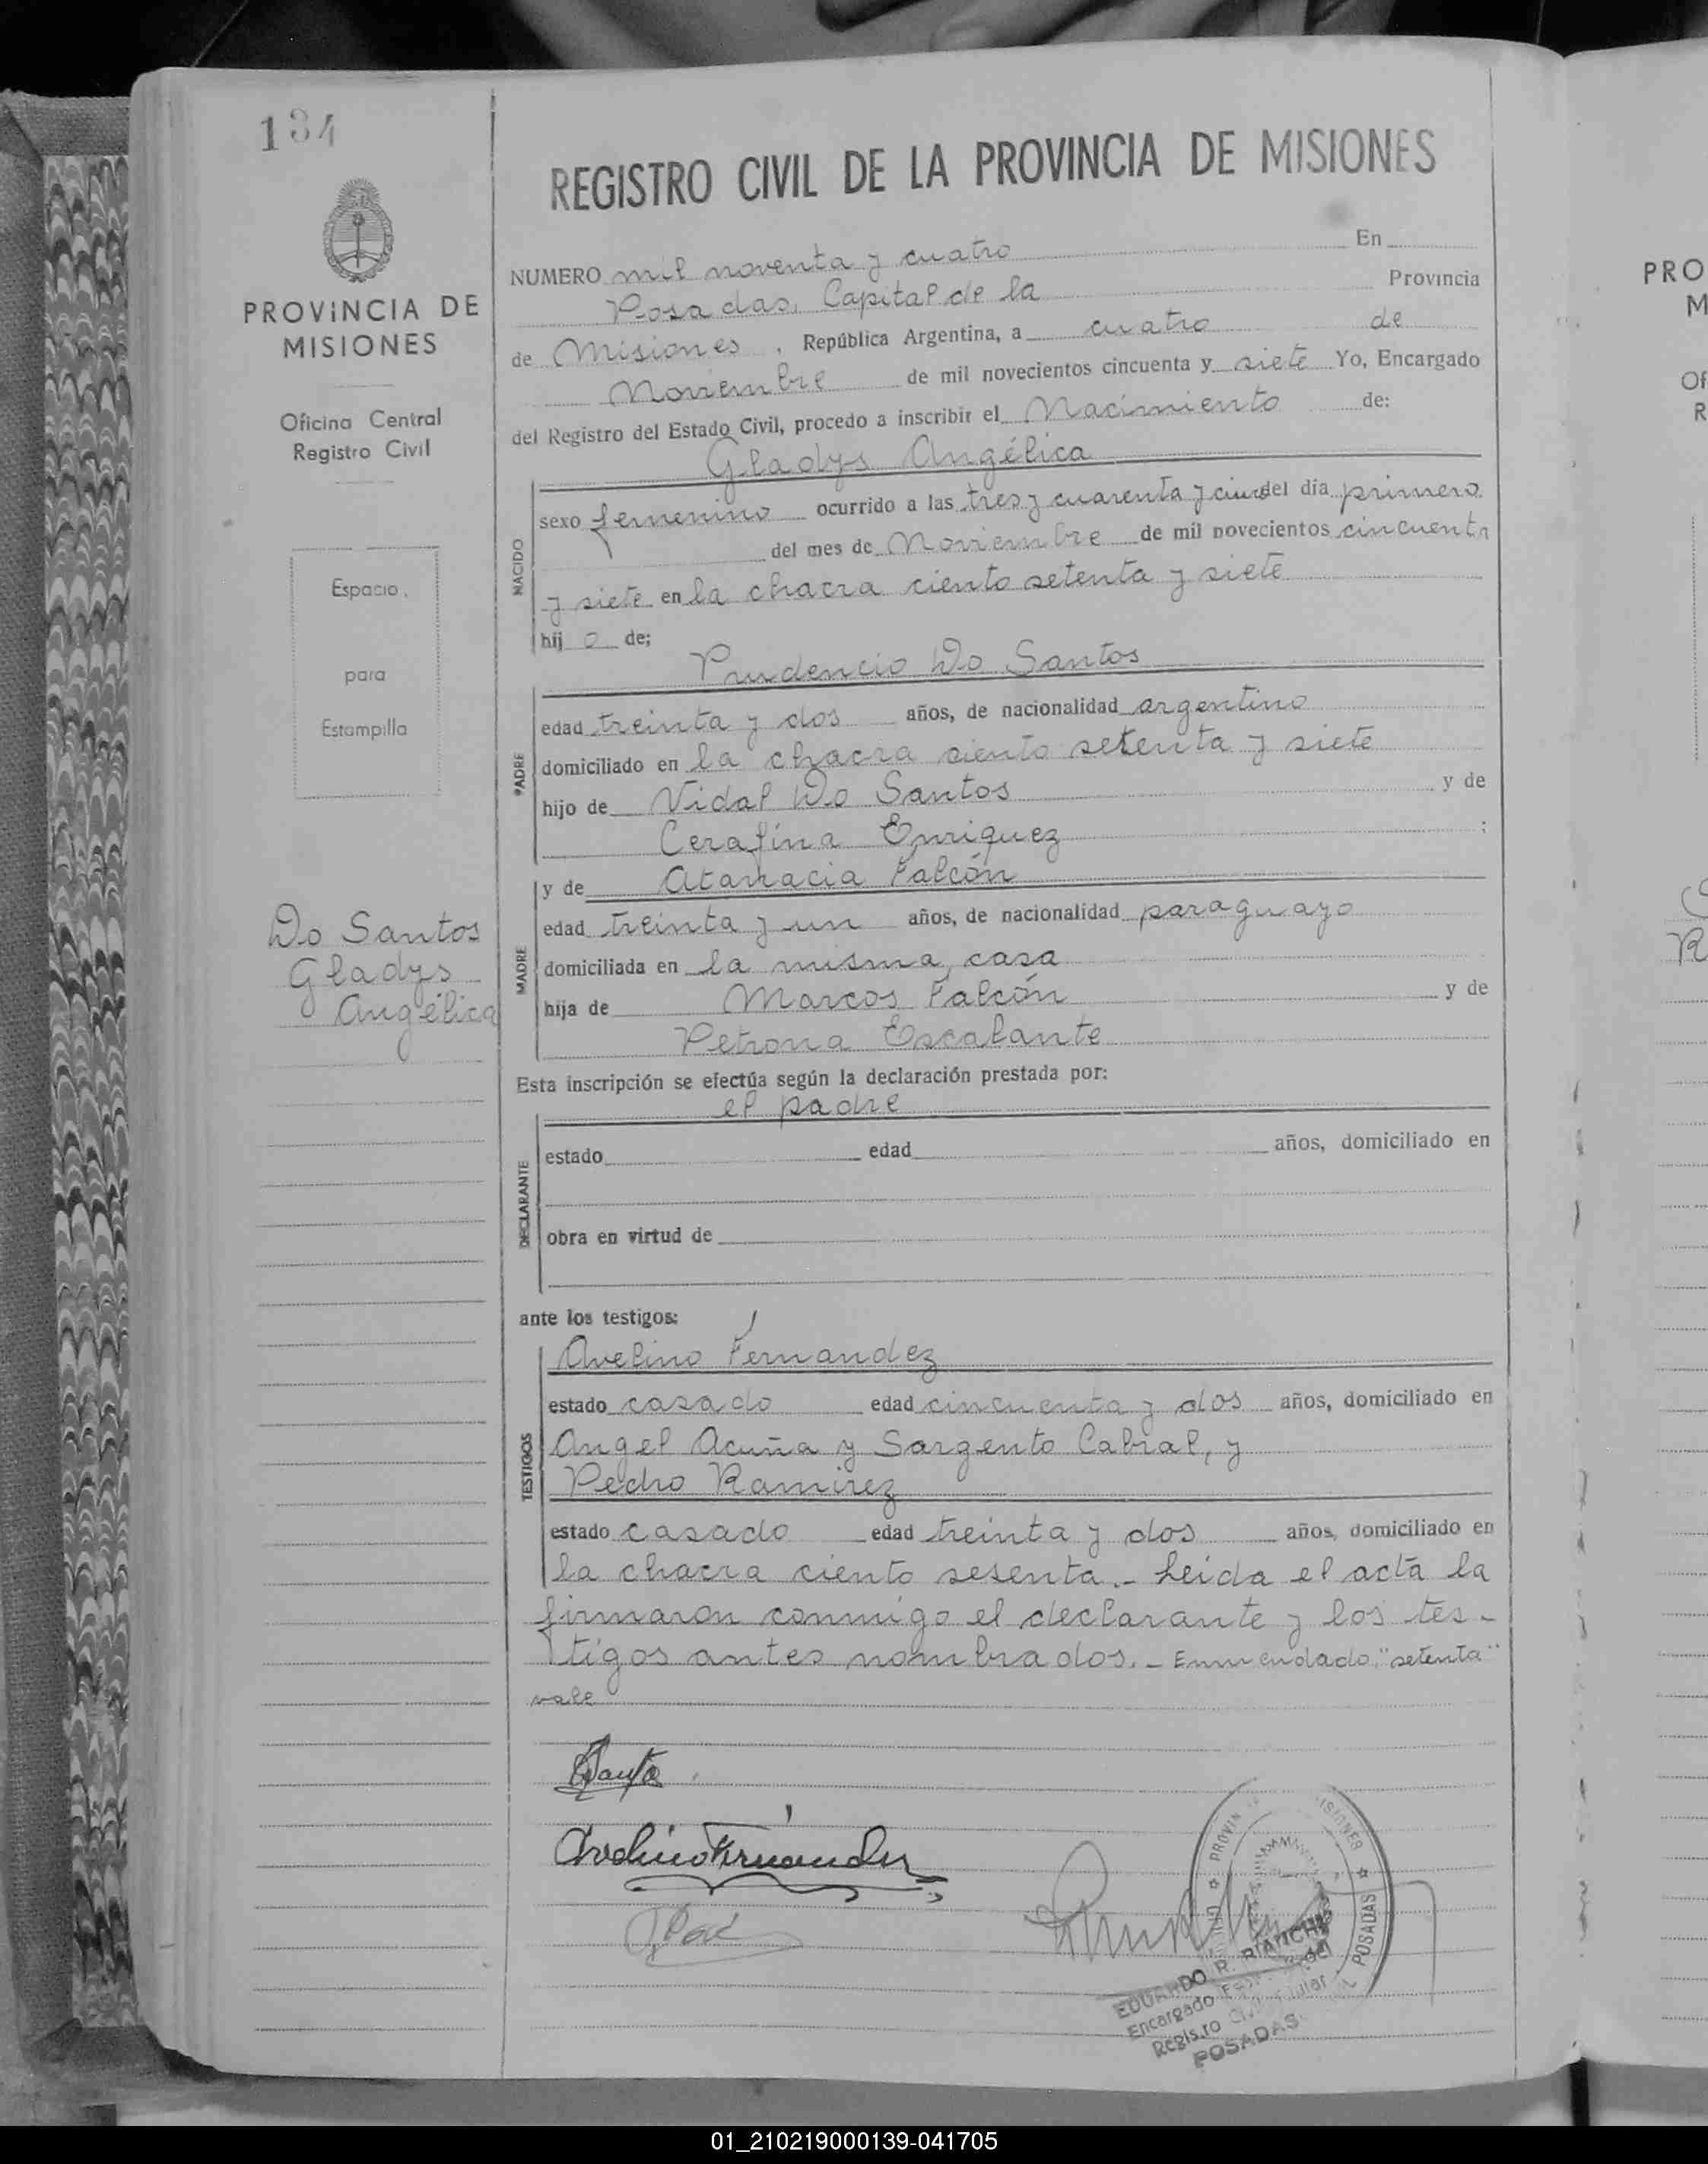 134
PROVINCIA DE
MISIONES
Oficina Central
Registro Civil
Espacio
para
Estampilla
Do Santos
Gladys
Angélica
REGISTRO CIVIL DE LA PROVINCIA DE MISIONES
NUMERO mil noventa y cuatro En
Posadas, Capital de la Provincia
de Misiones, República Argentina, a cuatro de
Noviembre de mil novecientos cincuenta y siete Yo, Encargado
del Registro del Estado Civil, procedo a inscribir el Nacimiento de:
Gladys Angélica
NACIDO
sexo femenino ocurrido a las tres y cuarenta y cinco del día primero
del mes de Noviembre de mil novecientos cincuenta
y siete en la chacra ciento setenta y siete
hij o de;
Prudencio Do Santos
PADRE
edad treinta y dos años, de nacionalidad argentino
domiciliado en la chacra ciento setenta y siete
hijo de Vidal Do Santos y de
Cerafina Enriquez ;
y de Atanacia Falcón
MADRE
edad treinta y un años, de nacionalidad paraguayo
domiciliada en la misma casa
hija de Marcos Falcón y de
Petrona Escalante
Esta inscripción se efectúa según la declaración prestada por:
el padre
DECLARANTE
estado edad años, domiciliado en
obra en virtud de
ante los testigos:
Avelino Fernandez
TESTIGOS
estado casado edad cincuenta y dos años, domiciliado en
Angel Acuña y Sargento Cabral, y
Pedro Ramirez
estado casado edad treinta y dos años, domiciliado en
la chacra ciento sesenta.- Leída el acta la
firmaron conmigo el declarante y los tes-
tigos antes nombrados.- Enmendado: "setenta"
vale
Avelino Fernández
PROVIN ISIONES
CIVIL POSADAS
EDUARDO R. BIANCHI
Encargado
Registro Civil Titular
POSADAS
PRO
M
Of
R
01_210219000139-041705